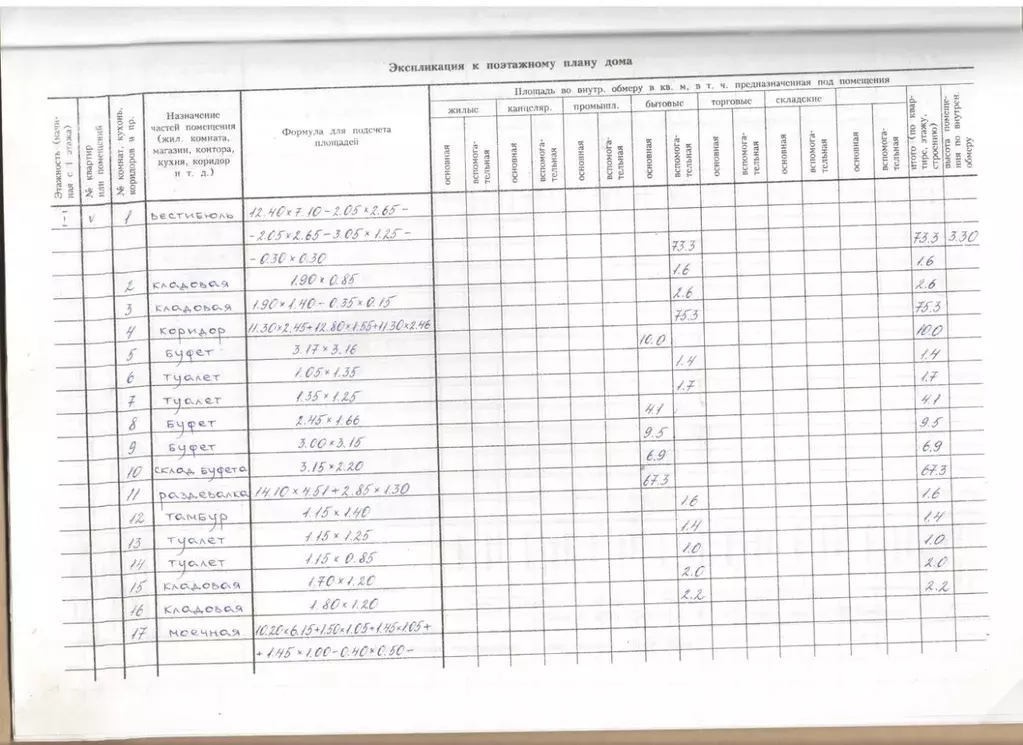 Экспликация к поэтажному плану дома
Этажность (начиная с 1 этажа)
№ квартир или помещений
№ комнат, кухонь, коридоров и пр.
Назначение частей помещения (жил. комната, магазин, контора, кухня, коридор и т. д.)
Формула для подсчета площадей
Площадь во внутр. обмеру в кв. м, в т. ч. предназначенная под помещения
жилые канцеляр. промышл. бытовые торговые складские
основная вспомога-тельная основная вспомога-тельная основная вспомога-тельная основная вспомога-тельная основная вспомога-тельная основная вспомога-тельная основная вспомога-тельная
итого (по квартире, этажу, строению)
высота помещения по внутрен. обмеру
V 1 вестибюль 12.40×7.10-2.05×2.65-
-2.05×2.65-3.05×1.25-
-0.30×0.30 73.3 73.3 3.30
2 кладовая 1.90×0.85 1.6 1.6
3 кладовая 1.90×1.40-0.35×0.15 2.6 2.6
4 коридор 11.30×2.45+12.80×1.55+11.30×2.46 75.3 75.3
5 буфет 3.17×3.16 10.0 10.0
6 туалет 1.05×1.35 1.4 1.4
7 туалет 1.35×1.25 1.7 1.7
8 буфет 2.45×1.66 4.1 4.1
9 буфет 3.00×3.15 9.5 9.5
10 склад буфета 3.15×2.20 6.9 6.9
11 раздевалка 14.10×4.51+2.85×1.30 67.3 67.3
12 тамбур 1.15×1.40 1.6 1.6
13 туалет 1.15×1.25 1.4 1.4
14 туалет 1.15×0.85 1.0 1.0
15 кладовая 1.70×1.20 2.0 2.0
16 кладовая 1.80×1.20 2.2 2.2
17 моечная 10.20×6.15+1.50×1.05+1.45×1.05+
+1.45×1.00-0.40×0.50-